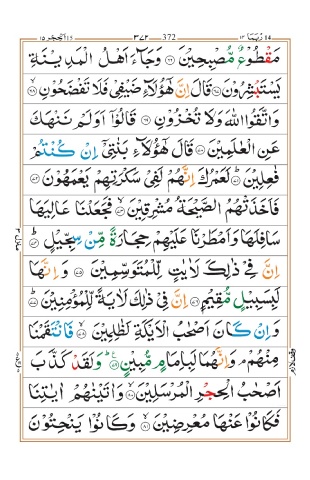 ربما ١٤ 372 ٣٧٢ الحجر ١٥
مَقْطُوْعٌ مُّصْبِحِيْنَ ﴿۶۶﴾ وَجَآءَ اَهْلُ الْمَدِيْنَةِ
يَسْتَبْشِرُوْنَ ﴿۶۷﴾ قَالَ اِنَّ هٰٓؤُلَآءِ ضَيْفِيْ فَلَا تَفْضَحُوْنِ ﴿۶۸﴾
وَاتَّقُوا اللّٰهَ وَلَا تُخْزُوْنِ ﴿۶۹﴾ قَالُوْٓا اَوَلَمْ نَنْهَكَ
عَنِ الْعٰلَمِيْنَ ﴿۷۰﴾ قَالَ هٰٓؤُلَآءِ بَنٰتِيْٓ اِنْ كُنْتُمْ
فٰعِلِيْنَ ﴿۷۱﴾ لَعَمْرُكَ اِنَّهُمْ لَفِيْ سَكْرَتِهِمْ يَعْمَهُوْنَ ﴿۷۲﴾
فَاَخَذَتْهُمُ الصَّيْحَةُ مُشْرِقِيْنَ ﴿۷۳﴾ فَجَعَلْنَا عَالِيَهَا
سَافِلَهَا وَاَمْطَرْنَا عَلَيْهِمْ حِجَارَةً مِّنْ سِجِّيْلٍ ﴿۷۴﴾
اِنَّ فِيْ ذٰلِكَ لَاٰيٰتٍ لِّلْمُتَوَسِّمِيْنَ ﴿۷۵﴾ وَاِنَّهَا
لَبِسَبِيْلٍ مُّقِيْمٍ ﴿۷۶﴾ اِنَّ فِيْ ذٰلِكَ لَاٰيَةً لِّلْمُؤْمِنِيْنَ ﴿۷۷﴾
وَاِنْ كَانَ اَصْحٰبُ الْاَيْكَةِ لَظٰلِمِيْنَ ﴿۷۸﴾ فَانْتَقَمْنَا
مِنْهُمْ وَاِنَّهُمَا لَبِاِمَامٍ مُّبِيْنٍ ﴿۷۹﴾ وَلَقَدْ كَذَّبَ
اَصْحٰبُ الْحِجْرِ الْمُرْسَلِيْنَ ﴿۸۰﴾ وَاٰتَيْنٰهُمْ اٰيٰتِنَا
فَكَانُوْا عَنْهَا مُعْرِضِيْنَ ﴿۸۱﴾ وَكَانُوْا يَنْحِتُوْنَ